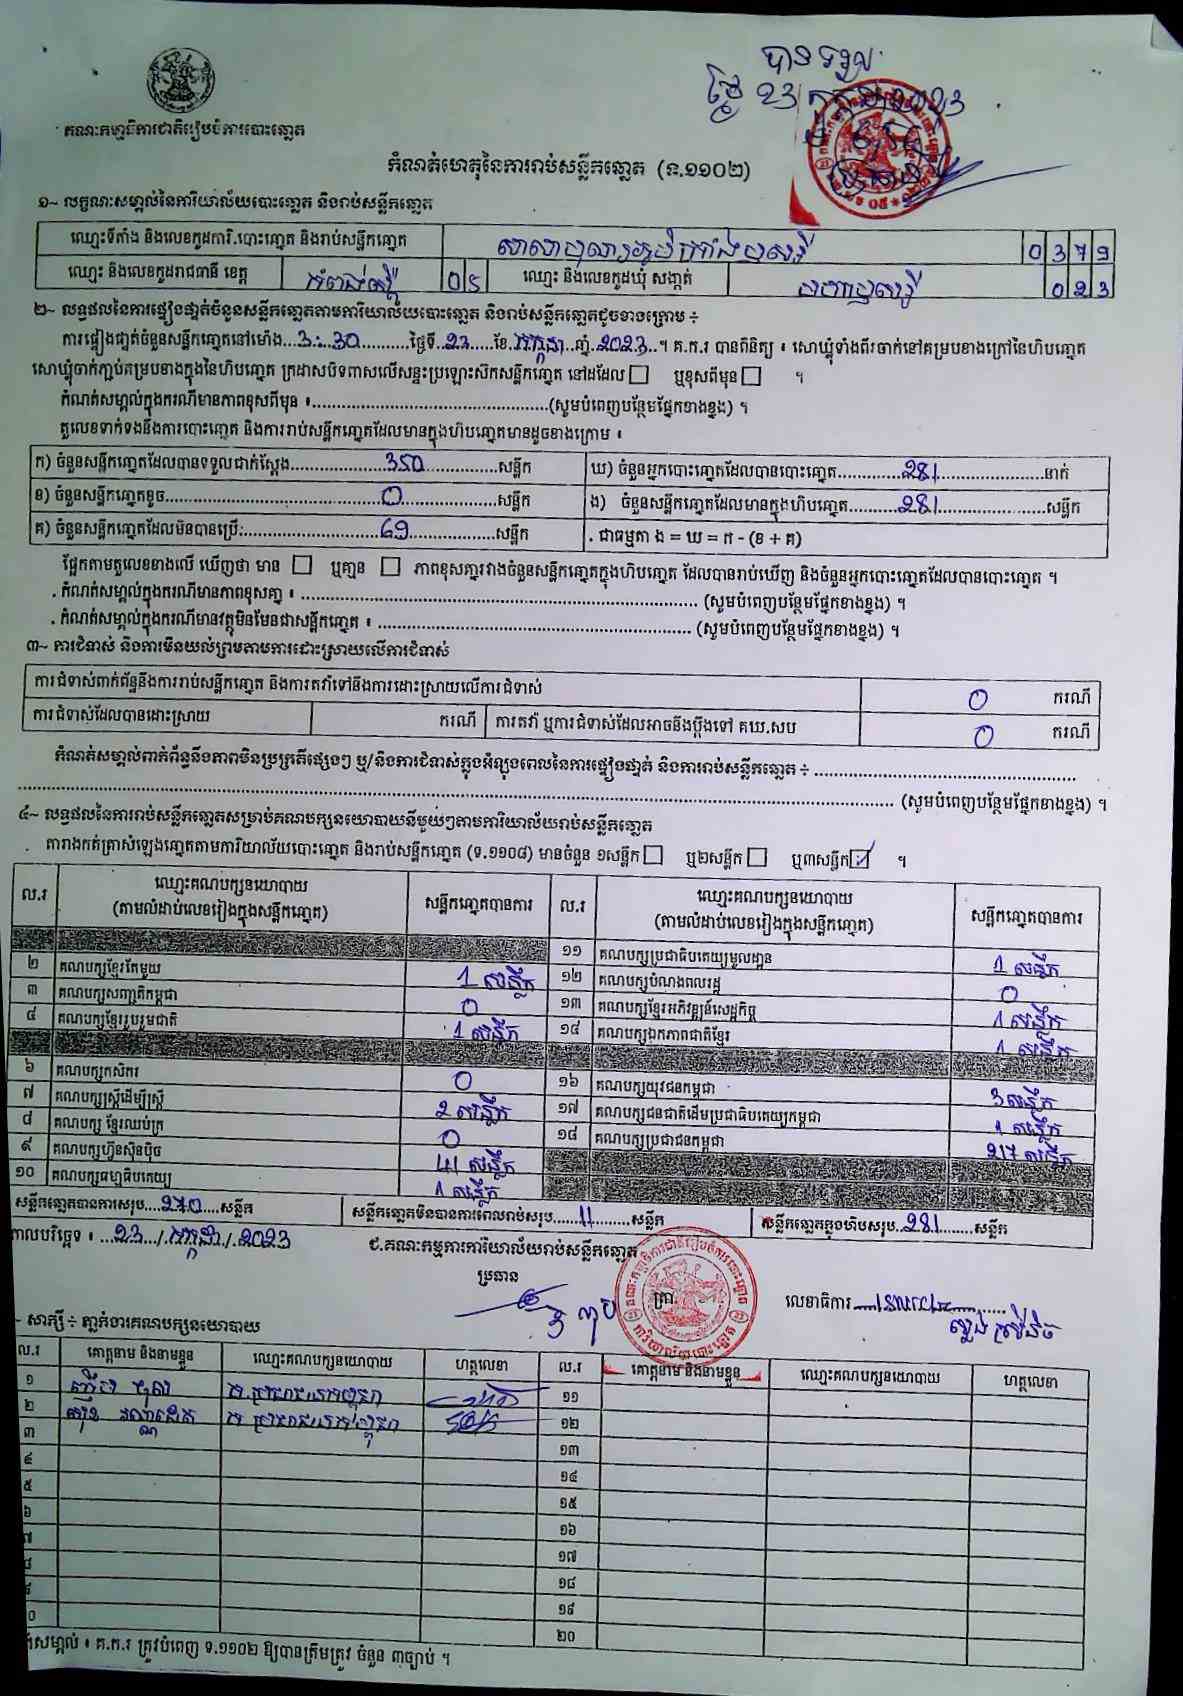 បានទទួល
ថ្ងៃ 23 កក្កដា 2023
គណៈកម្មាធិការជាតិរៀបចំការបោះឆ្នោត
កំណត់ហេតុនៃការរាប់សន្លឹកឆ្នោត (ទ.១១០២)
១~ លក្ខណៈសម្គាល់នៃការិយាល័យបោះឆ្នោត និងរាប់សន្លឹកឆ្នោត
ឈ្មោះទីតាំង និងលេខកូដការិ.បោះឆ្នោត និងរាប់សន្លឹកឆ្នោត 0 3 7 9
ឈ្មោះ និងលេខកូដរាជធានី ខេត្ត កំពង់ស្ពឺ 0 5 ឈ្មោះ និងលេខកូដឃុំ សង្កាត់ 0 2 3
២~ លទ្ធផលនៃការផ្ទៀងផ្ទាត់ចំនួនសន្លឹកឆ្នោតតាមការិយាល័យបោះឆ្នោត និងរាប់សន្លឹកឆ្នោតដូចខាងក្រោម ÷
ការផ្ទៀងផ្ទាត់ចំនួនសន្លឹកឆ្នោតនៅម៉ោង...3:30...ថ្ងៃទី..23...ខែ.កក្កដា..ឆ្នាំ.2023..។ គ.ក.រ បានពិនិត្យ ៖ សោឃ្លុំទាំងពីរចាក់នៅគម្របខាងក្រៅនៃហិបឆ្នោត
សោឃ្លុំចាក់ភ្ជាប់គម្របខាងក្នុងនៃហិបឆ្នោត ក្រដាសបិទពាសលើសន្ទះប្រឡោះសឹកសន្លឹកឆ្នោត នៅដដែល ☐ ឬខុសពីមុន ☐ ។
កំណត់សម្គាល់ក្នុងករណីមានភាពខុសពីមុន ៖..........(សូមបំពេញបន្ថែមផ្នែកខាងខ្នង) ។
តួលេខទាក់ទងនឹងការបោះឆ្នោត និងការរាប់សន្លឹកឆ្នោតដែលមានក្នុងហិបឆ្នោតមានដូចខាងក្រោម ៖
ក) ចំនួនសន្លឹកឆ្នោតដែលបានទទួលជាក់ស្តែង..........350..........សន្លឹក ឃ) ចំនួនអ្នកបោះឆ្នោតដែលបានបោះឆ្នោត..........281..........នាក់
ខ) ចំនួនសន្លឹកឆ្នោតខូច..........0..........សន្លឹក ង) ចំនួនសន្លឹកឆ្នោតដែលមានក្នុងហិបឆ្នោត..........281..........សន្លឹក
គ) ចំនួនសន្លឹកឆ្នោតដែលមិនបានប្រើ:..........69..........សន្លឹក . ជាធម្មតា ង = ឃ = ក - (ខ + គ)
ផ្អែកតាមតួលេខខាងលើ ឃើញថា មាន ☐ ឬគ្មាន ☐ ភាពខុសគ្នារវាងចំនួនសន្លឹកឆ្នោតក្នុងហិបឆ្នោត ដែលបានរាប់ឃើញ និងចំនួនអ្នកបោះឆ្នោតដែលបានបោះឆ្នោត ។
. កំណត់សម្គាល់ក្នុងករណីមានភាពខុសគ្នា ៖ .......... (សូមបំពេញបន្ថែមផ្នែកខាងខ្នង) ។
. កំណត់សម្គាល់ក្នុងករណីមានវត្ថុមិនមែនជាសន្លឹកឆ្នោត ៖ .......... (សូមបំពេញបន្ថែមផ្នែកខាងខ្នង) ។
៣~ ការជំទាស់ និងការមិនយល់ព្រមតាមការដោះស្រាយលើការជំទាស់
ការជំទាស់ពាក់ព័ន្ធនឹងការរាប់សន្លឹកឆ្នោត និងការតវ៉ាទៅនឹងការដោះស្រាយលើការជំទាស់ 0 ករណី
ការជំទាស់ដែលបានដោះស្រាយ ករណី ការតវ៉ា ឬការជំទាស់ដែលអាចនឹងប្តឹងទៅ គឃ.សប 0 ករណី
កំណត់សម្គាល់ពាក់ព័ន្ធនឹងភាពមិនប្រក្រតីផ្សេងៗ ឬ/និងការជំទាស់ក្នុងអំឡុងពេលនៃការផ្ទៀងផ្ទាត់ និងការរាប់សន្លឹកឆ្នោត ÷ ..........
.......... (សូមបំពេញបន្ថែមផ្នែកខាងខ្នង) ។
៤~ លទ្ធផលនៃការរាប់សន្លឹកឆ្នោតសម្រាប់គណបក្សនយោបាយនីមួយៗតាមការិយាល័យរាប់សន្លឹកឆ្នោត
តារាងកត់ត្រាសំឡេងឆ្នោតតាមការិយាល័យបោះឆ្នោត និងរាប់សន្លឹកឆ្នោត (ទ.១១០៨) មានចំនួន ១សន្លឹក ☐ ឬ២សន្លឹក ☐ ឬ៣សន្លឹក ☑ ។
ល.រ ឈ្មោះគណបក្សនយោបាយ (តាមលំដាប់លេខរៀងក្នុងសន្លឹកឆ្នោត) សន្លឹកឆ្នោតបានការ ល.រ ឈ្មោះគណបក្សនយោបាយ (តាមលំដាប់លេខរៀងក្នុងសន្លឹកឆ្នោត) សន្លឹកឆ្នោតបានការ
១១ គណបក្សប្រជាធិបតេយ្យមូលដ្ឋាន 1 សន្លឹក
២ គណបក្សខ្មែរតែមួយ 1 សន្លឹក ១២ គណបក្សបំណងពលរដ្ឋ 0
៣ គណបក្សសញ្ជាតិកម្ពុជា 0 ១៣ គណបក្សខ្មែរអភិវឌ្ឍន៍សេដ្ឋកិច្ច 1 សន្លឹក
៤ គណបក្សខ្មែររួបរួមជាតិ 1 សន្លឹក ១៤ គណបក្សឯកភាពជាតិខ្មែរ 1 សន្លឹក
៦ គណបក្សកសិករ 0 ១៦ គណបក្សយុវជនកម្ពុជា 3 សន្លឹក
៧ គណបក្សស្ត្រីដើម្បីស្ត្រី 2 សន្លឹក ១៧ គណបក្សជនជាតិដើមប្រជាធិបតេយ្យកម្ពុជា 1 សន្លឹក
៨ គណបក្ស ខ្មែរឈប់ក្រ 0 ១៨ គណបក្សប្រជាជនកម្ពុជា 217 សន្លឹក
៩ គណបក្សហ៊្វុនស៊ិនប៉ិច 41 សន្លឹក
១០ គណបក្សធម្មាធិបតេយ្យ 1 សន្លឹក
សន្លឹកឆ្នោតបានការសរុប....270....សន្លឹក សន្លឹកឆ្នោតមិនបានការពេលរាប់សរុប.......11.........សន្លឹក សន្លឹកឆ្នោតក្នុងហិបសរុប..281........សន្លឹក
កាលបរិច្ឆេទ ៖ ...23.../.កក្កដា./.2023
ជ.គណៈកម្មការការិយាល័យរាប់សន្លឹកឆ្នោត
ប្រធាន
ត្រា
លេខាធិការ
~ សាក្សី ÷ ភ្នាក់ងារគណបក្សនយោបាយ
ល.រ គោត្តនាម និងនាមខ្លួន ឈ្មោះគណបក្សនយោបាយ ហត្ថលេខា ល.រ គោត្តនាម និងនាមខ្លួន ឈ្មោះគណបក្សនយោបាយ ហត្ថលេខា
១ គ.ប្រជាជនកម្ពុជា ១១
២ គ ប្រជាជនកម្ពុជា ១២
៣ ១៣
៤ ១៤
៥ ១៥
៦ ១៦
៧ ១៧
៨ ១៨
៩ ១៩
០ ២០
សម្គាល់ ៖ គ.ក.រ ត្រូវបំពេញ ទ.១១០២ ឱ្យបានត្រឹមត្រូវ ចំនួន ៣ច្បាប់ ។